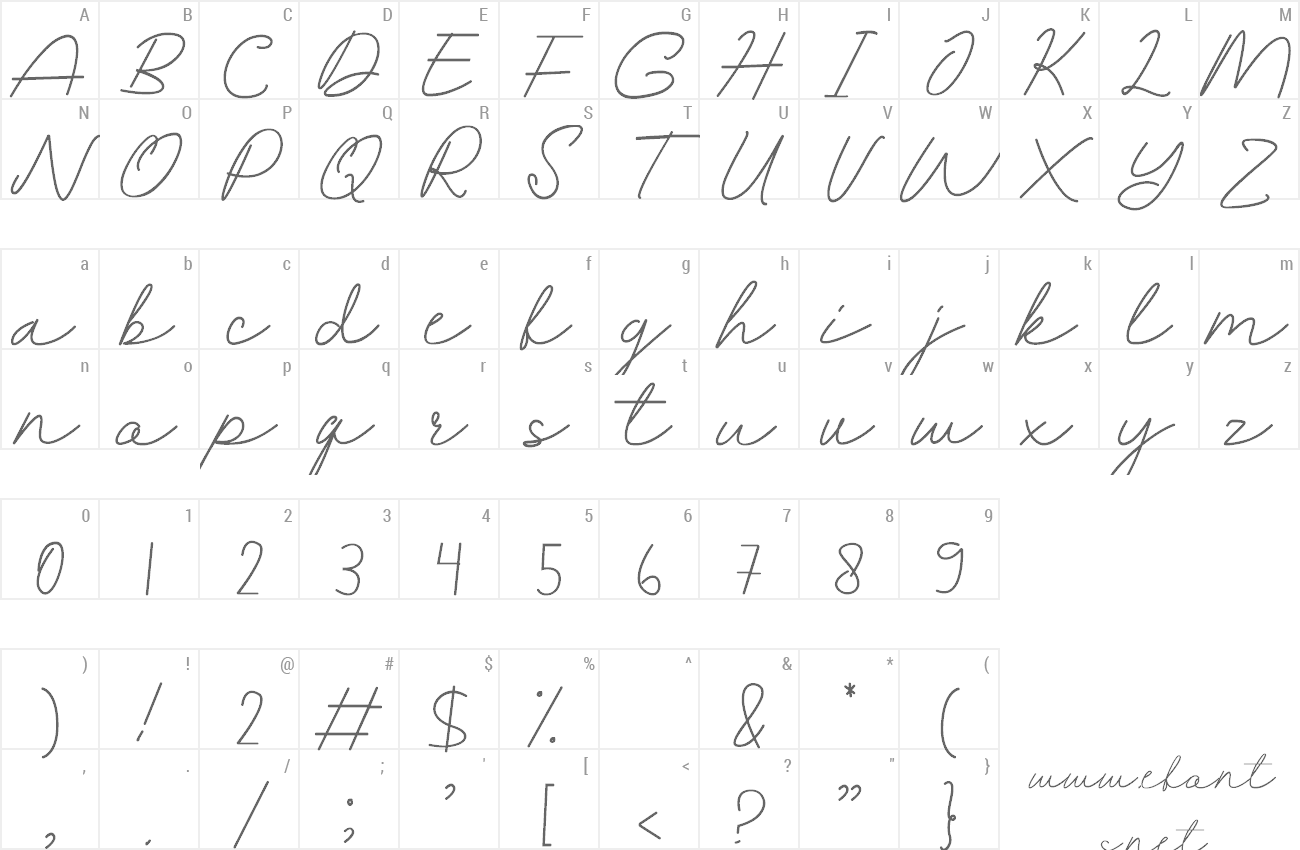 A B C D E F G H I J K L M
A B C D E F G H I J K L M
N O P Q R S T U V W X Y Z
N O P Q R S T U V W X Y Z
a b c d e f g h i j k l m
a b c d e f g h i j k l m
n o p q r s t u v w x y z
n o p q r s t u u w x y z
0 1 2 3 4 5 6 7 8 9
0 1 2 3 4 5 6 7 8 9
) ! @ # $ % ^ & * (
) ! 2 # $ % & * (
, . / ; ' [ < ? " }
, . / ; ’ [ < ? ” }
www.efont
s.net